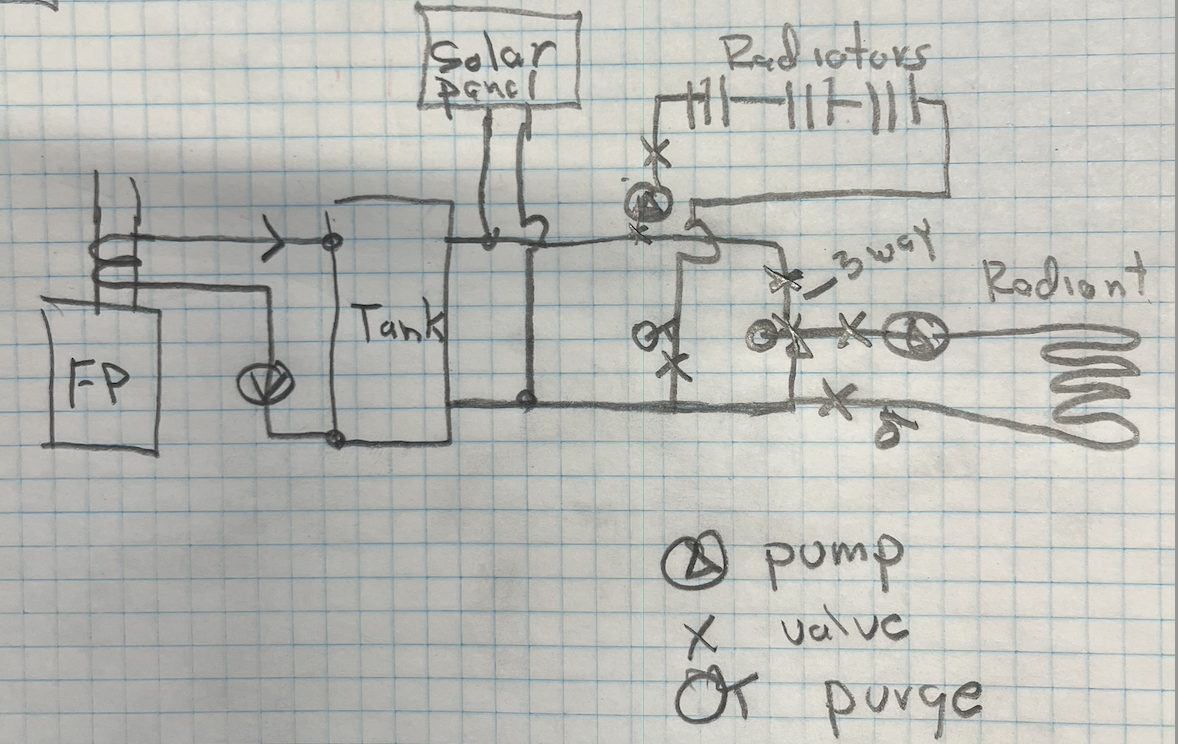 Solar
panel
Radiators
3 way
Radiant
Tank
FP
pump
valve
purge